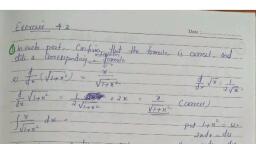 Exercise 4.2
Date:
① In each part. Confirm that the formula is correct. and
state a corresponding integration formula
a) d/dx (√1+x²) = x/√1+x²
d/dx √x = 1/2√x
d/dx √1+x² = 1/2√1+x² × 2x = x/√1+x² (correct)
∫ x/√1+x² dx =
put 1+x² = u
2xdx = du